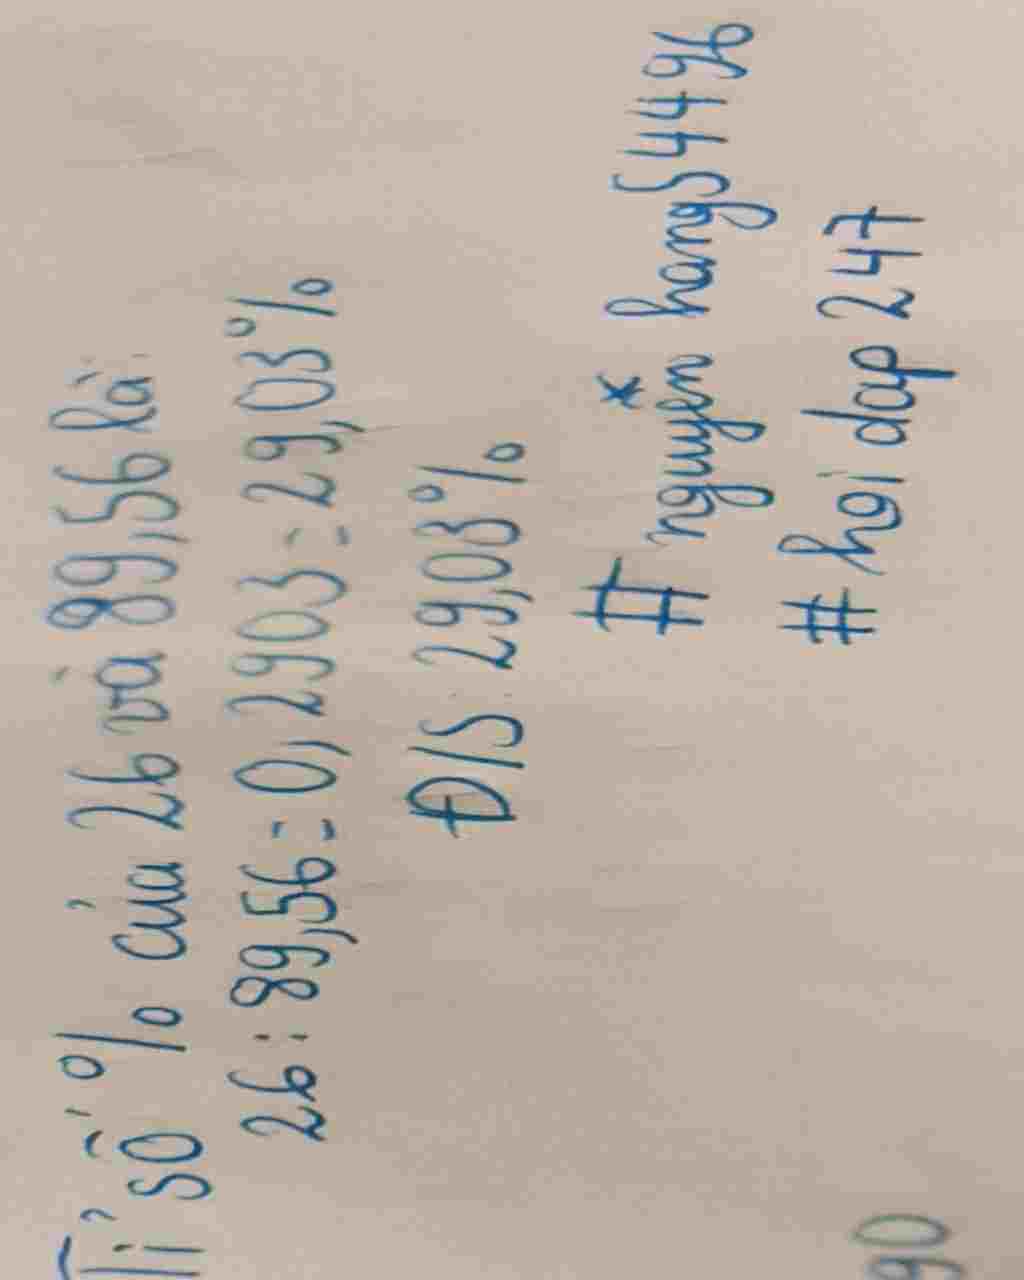 Tỉ số % của 26 và 89,56 là:
26 : 89,56 = 0,2903 = 29,03%
Đ/S: 29,03%
# nguyễn hang54496
# hoi dap 247
90